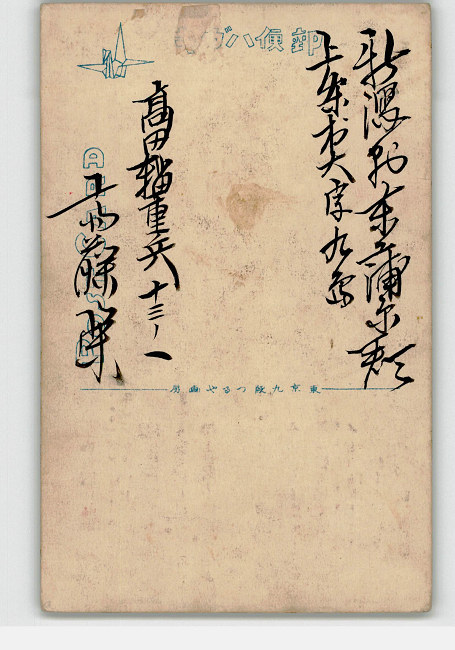 郵便ハガ
新潟県東蒲原郡
上条村大字九島
高田輜重兵十三ノ一
藤
東京九段つるや画房